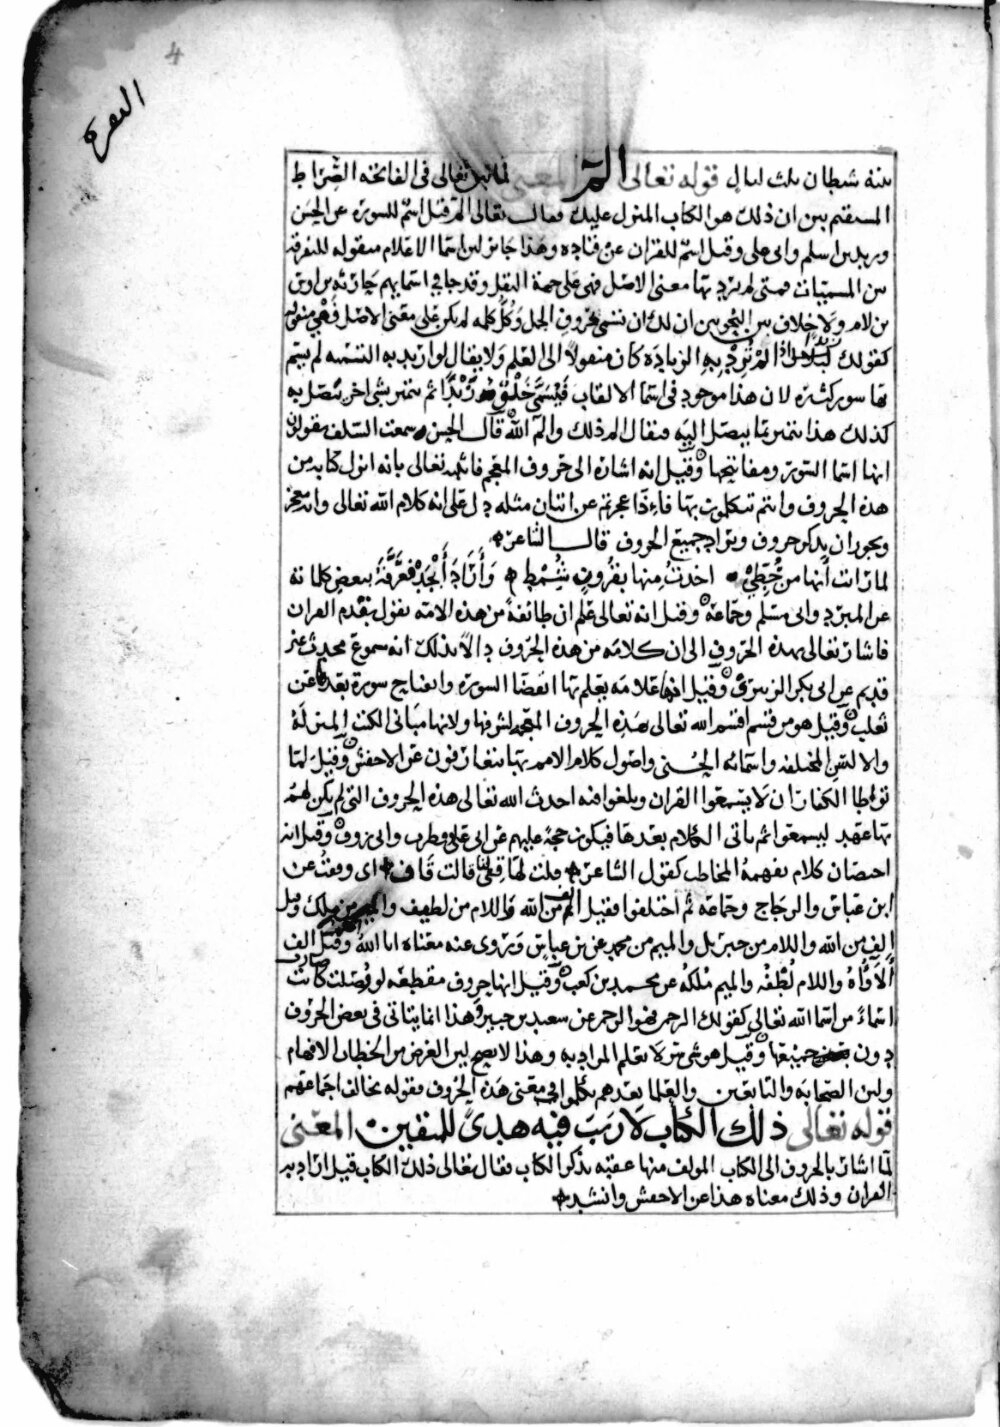 4
البقرة
بيته شيطان ثلث ليال قوله تعالى الم المعنى لما قيل تعالى في الفاتحه الصراط
المستقيم بين ان ذلك هو الكتاب المنزل عليك فقال تعالى الم قيل اسم للسورة عن الحسن
وزيد بن اسلم وابي علي وقيل اسم للقران عن قتاده وهذا جائز لان اسما الاعلام منقوله للتفرقة
بين المسميات فمتى لم يرد بها معنى الاصل فهي على جهة النقل وقد جا في اسمايهم حارثه بن اوس
بن لام ولا خلاف بين النحويين ان لك ان تسمي بحروف الجمل وكل كلمه لم يكن على معنى الاصل فهي منقوله
كقولك زيد اذا لم ترد به الزياده كان منقولا الى العلم ولا يقال لو اريد به التسميه لم يتم
بها سور كثيره لان هذا موجود في اسما الالقاب فيسمى خلق زيدا ثم يتميز بشي اخر يتصل به
كذلك هذا يتميز بما يتصل اليه فيقال الم ذلك والم الله قال الحسن سمعت السلف يقولون
انها اسما السور ومفاتيحها وقيل انه اشارة الى حروف المعجم فاتهم تعالى بانه انزل كتابه من
هذه الحروف وانتم تتكلمون بها فاذا عجزتم عن اتيان مثله دل على انه كلام الله تعالى وانه معجز
ويجوز ان يذكر حروف ويراد جميع الحروف قال الشاعر
لما رات أنها من حُطّي اخذت منها بقرون شُمط وأراد أبجد فعرفه ببعض كلماته
عن المبرد وابي مسلم وجماعة وقيل انه تعالى علم ان طائفة من هذه الامه تقول بقدم القران
فاشار تعالى بهذه الحروف الى ان كلامه من هذه الحروف دالا بذلك انه مسموع محدث غير
قديم عن ابي بكر الزبيري وقيل انها علامه يعلم بها انقضا السورة وافتتاح سورة بعدها عن
ثعلب وقيل هو من قسم اقسم الله تعالى بهذه الحروف المعجم لشرفها ولانها مباني الكتب المنزلة
والالسن المختلفه واسمائه الحسنى واصول كلام الامم بها يتعارفون عن الاخفش وقيل لما
تواطا الكفار ان لا يسمعوا القران ويلغوا فيه احدث الله تعالى هذه الحروف التي لم يكن لهم
بها عهد ليسمعوا ثم ياتي الكلام بعدها فيكون حجة عليهم عن ابي علي وقطرب وابي روق وقيل انه
اختصار كلام يفهمه المخاطب كقول الشاعر قلت لها قفي لنا قالت قاف اي وقفت عن
ابن عباس والزجاج وجماعه ثم اختلفوا فقيل الالف من الله واللام من لطيف والميم من ملك وقيل
الف من الله واللام من جبريل والميم من محمد عن بن عباس وروى عنه معناه انا الله وقيل الف
ألاؤه واللام لطفه والميم ملكه عن محمد بن كعب وقيل انها حروف مقطعه لو فصلت كانت
اسماء من اسما الله تعالى كقولك الر حم ن فهو الرحمن عن سعيد بن جبير وهذا انما يتاتى في بعض الحروف
دون جميعها وقيل هو شي سر لا يعلم المراد به وهذا لا يصح لان الغرض من الخطاب الافهام
ولان الصحابه والتابعين والعلما بعدهم تكلموا في معنى هذه الحروف فقوله يخالف اجماعهم
قوله تعالى ذلك الكتاب لا ريب فيه هدى للمتقين المعنى
لما اشار بالحروف الى الكتاب المولف منها عقبه بذكر الكتاب فقال تعالى ذلك الكتاب قيل اراد به
القران وذلك معناه هذا عن الاخفش وانشد